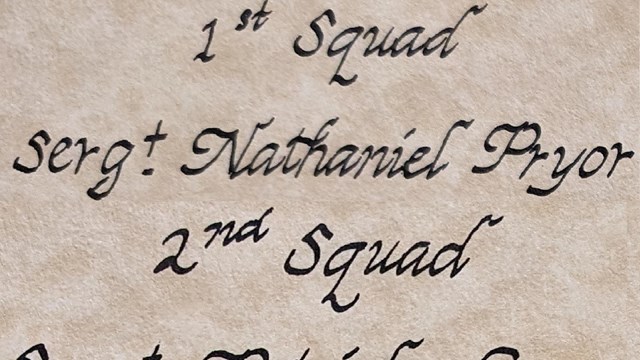 1st Squad
Sergt Nathaniel Pryor
2nd Squad